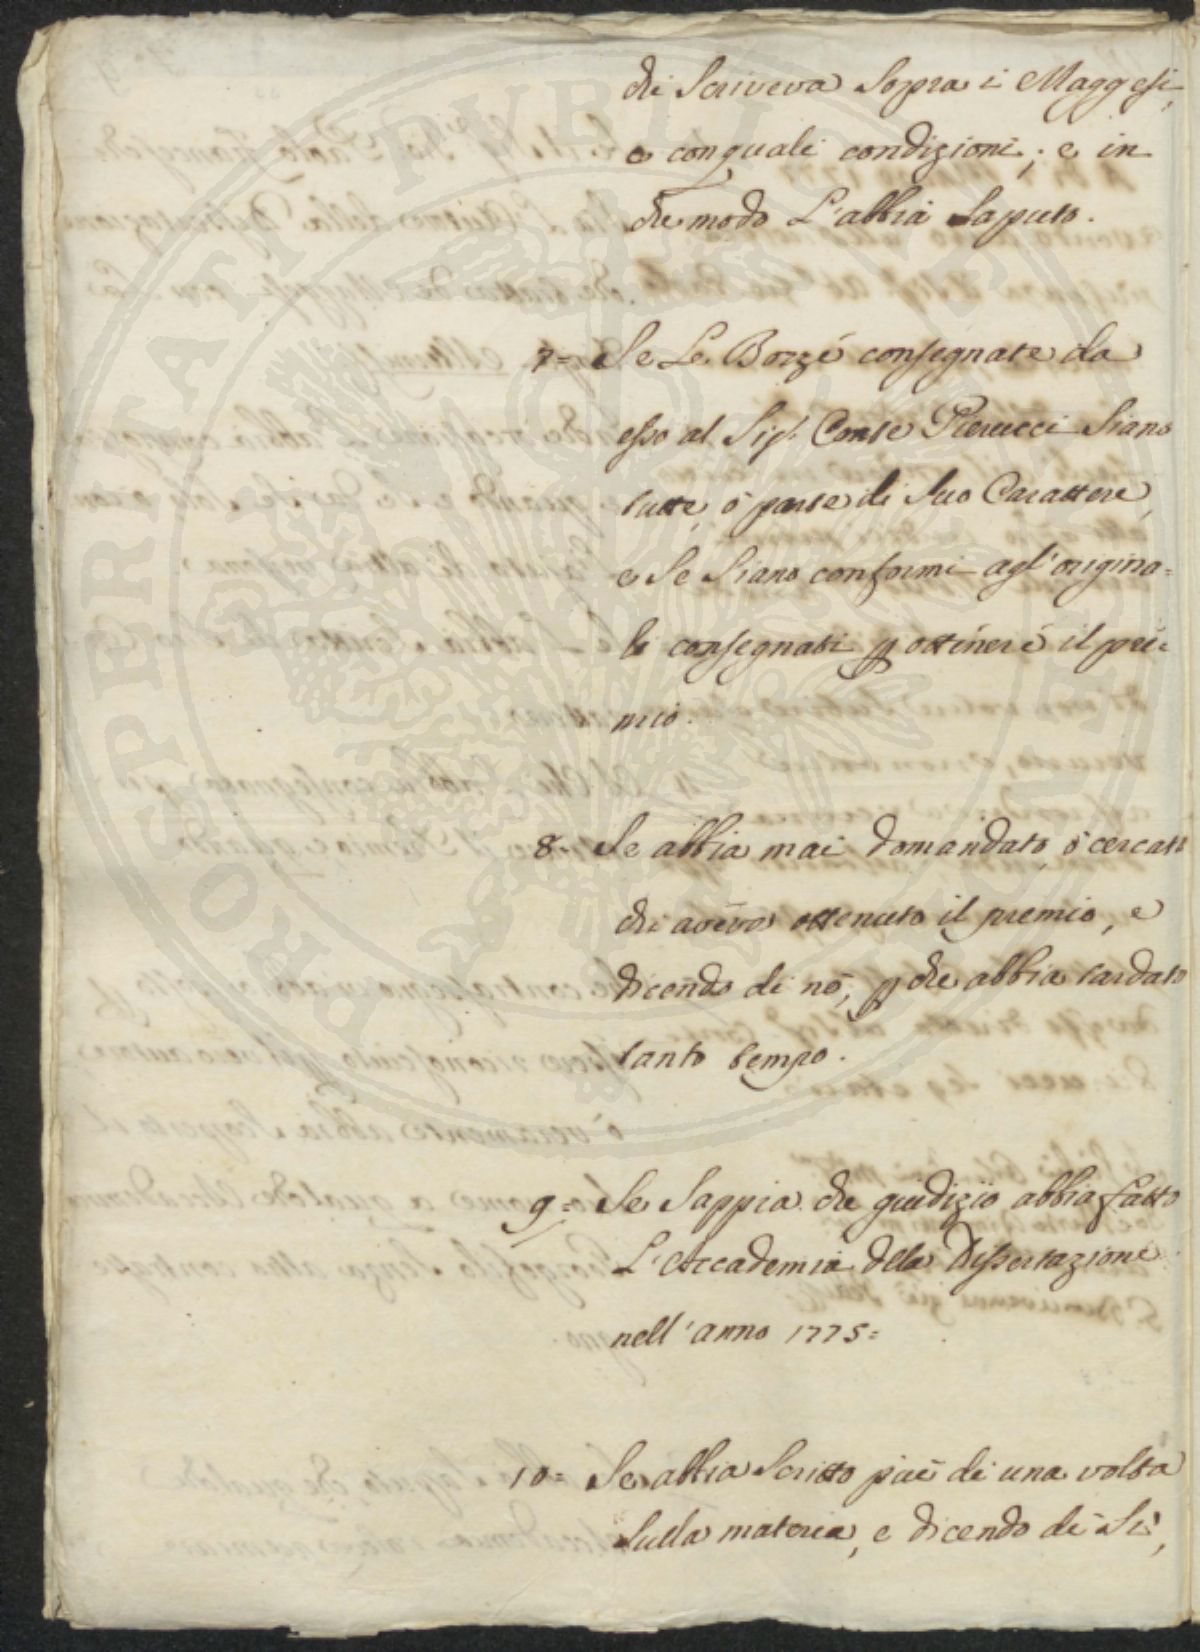 chi scriveva sopra i Maggesi,
e con quali condizioni; e in
che modo l'abbia saputo.
7= Se le Bozze consegnate da
esso al Sig.r Conte Pierucci siano
tutte, ò parte di suo Carattere,
e se siano conformi agl'origina=
li consegnati p ottenere il pre=
mio.
8= Se abbia mai domandato, ò cercato
chi aveva ottenuto il premio, e
dicendo di nò, p che abbia tardato
tanto tempo.
9= Se sappia che giudizio abbia fatto
l'Accademia della Dissertazione
nell'anno 1775=
10= Se abbia scritto più di una volta
sulla materia, e dicendo di sì,
PROSPERITATI PUBLICAE